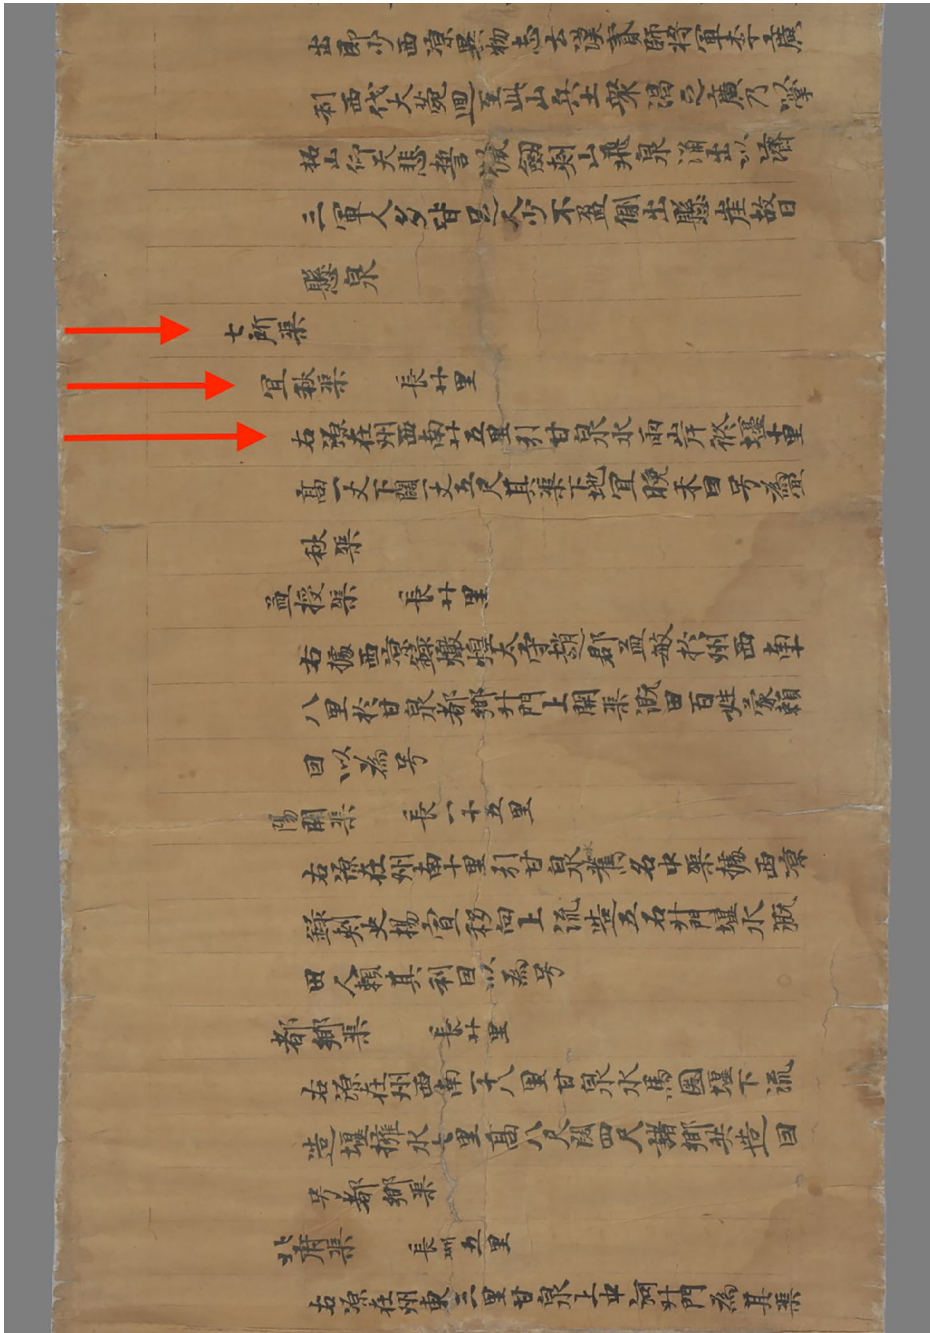 出即少西涼異物志云漢貳師將軍李廣
利西伐大菀迴至此山兵士衆渴乏廣乃以掌
拓山仰天悲誓以佩劒刺山飛泉涌出以濟
三軍人多皆足人少不盈側出懸崖故曰
懸泉
七所渠
宜秋渠 長廿里
右源在州西南廿五里引甘泉水兩岸修堰十里
高一丈下闊一丈五尺其渠下地宜晚禾因号為宜
秋渠
孟授渠 長廿里
右據西涼錄燉煌太守趙郡孟敏於州西南十
八里於甘泉都鄉斗門上開渠溉田百姓蒙賴
因以為号
陽開渠 長一十五里
右源在州南十里引甘泉舊名中渠據西涼
錄刺史楊宣移向上流造五石斗門堰水溉
田人賴其利因以為号
都鄉渠 長廿里
右源在州西南一十八里甘泉水馬圈堰下流
造堰擁水七里高八尺闊四尺諸鄉共造因
号都鄉渠
北府渠 長卌五里
右源在州東三里甘泉上中河斗門為其渠